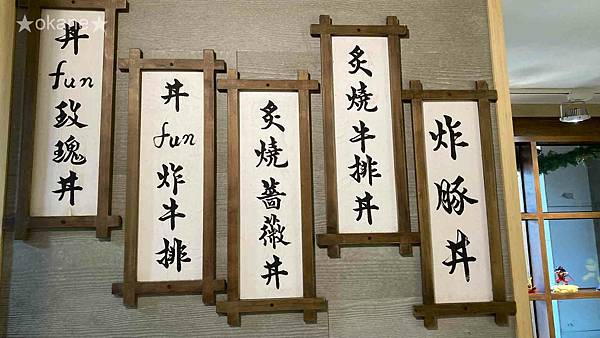 ★okane★
丼fun玫瑰丼
丼fun炸牛排
炙燒薔薇丼
炙燒牛排丼
炸豚丼